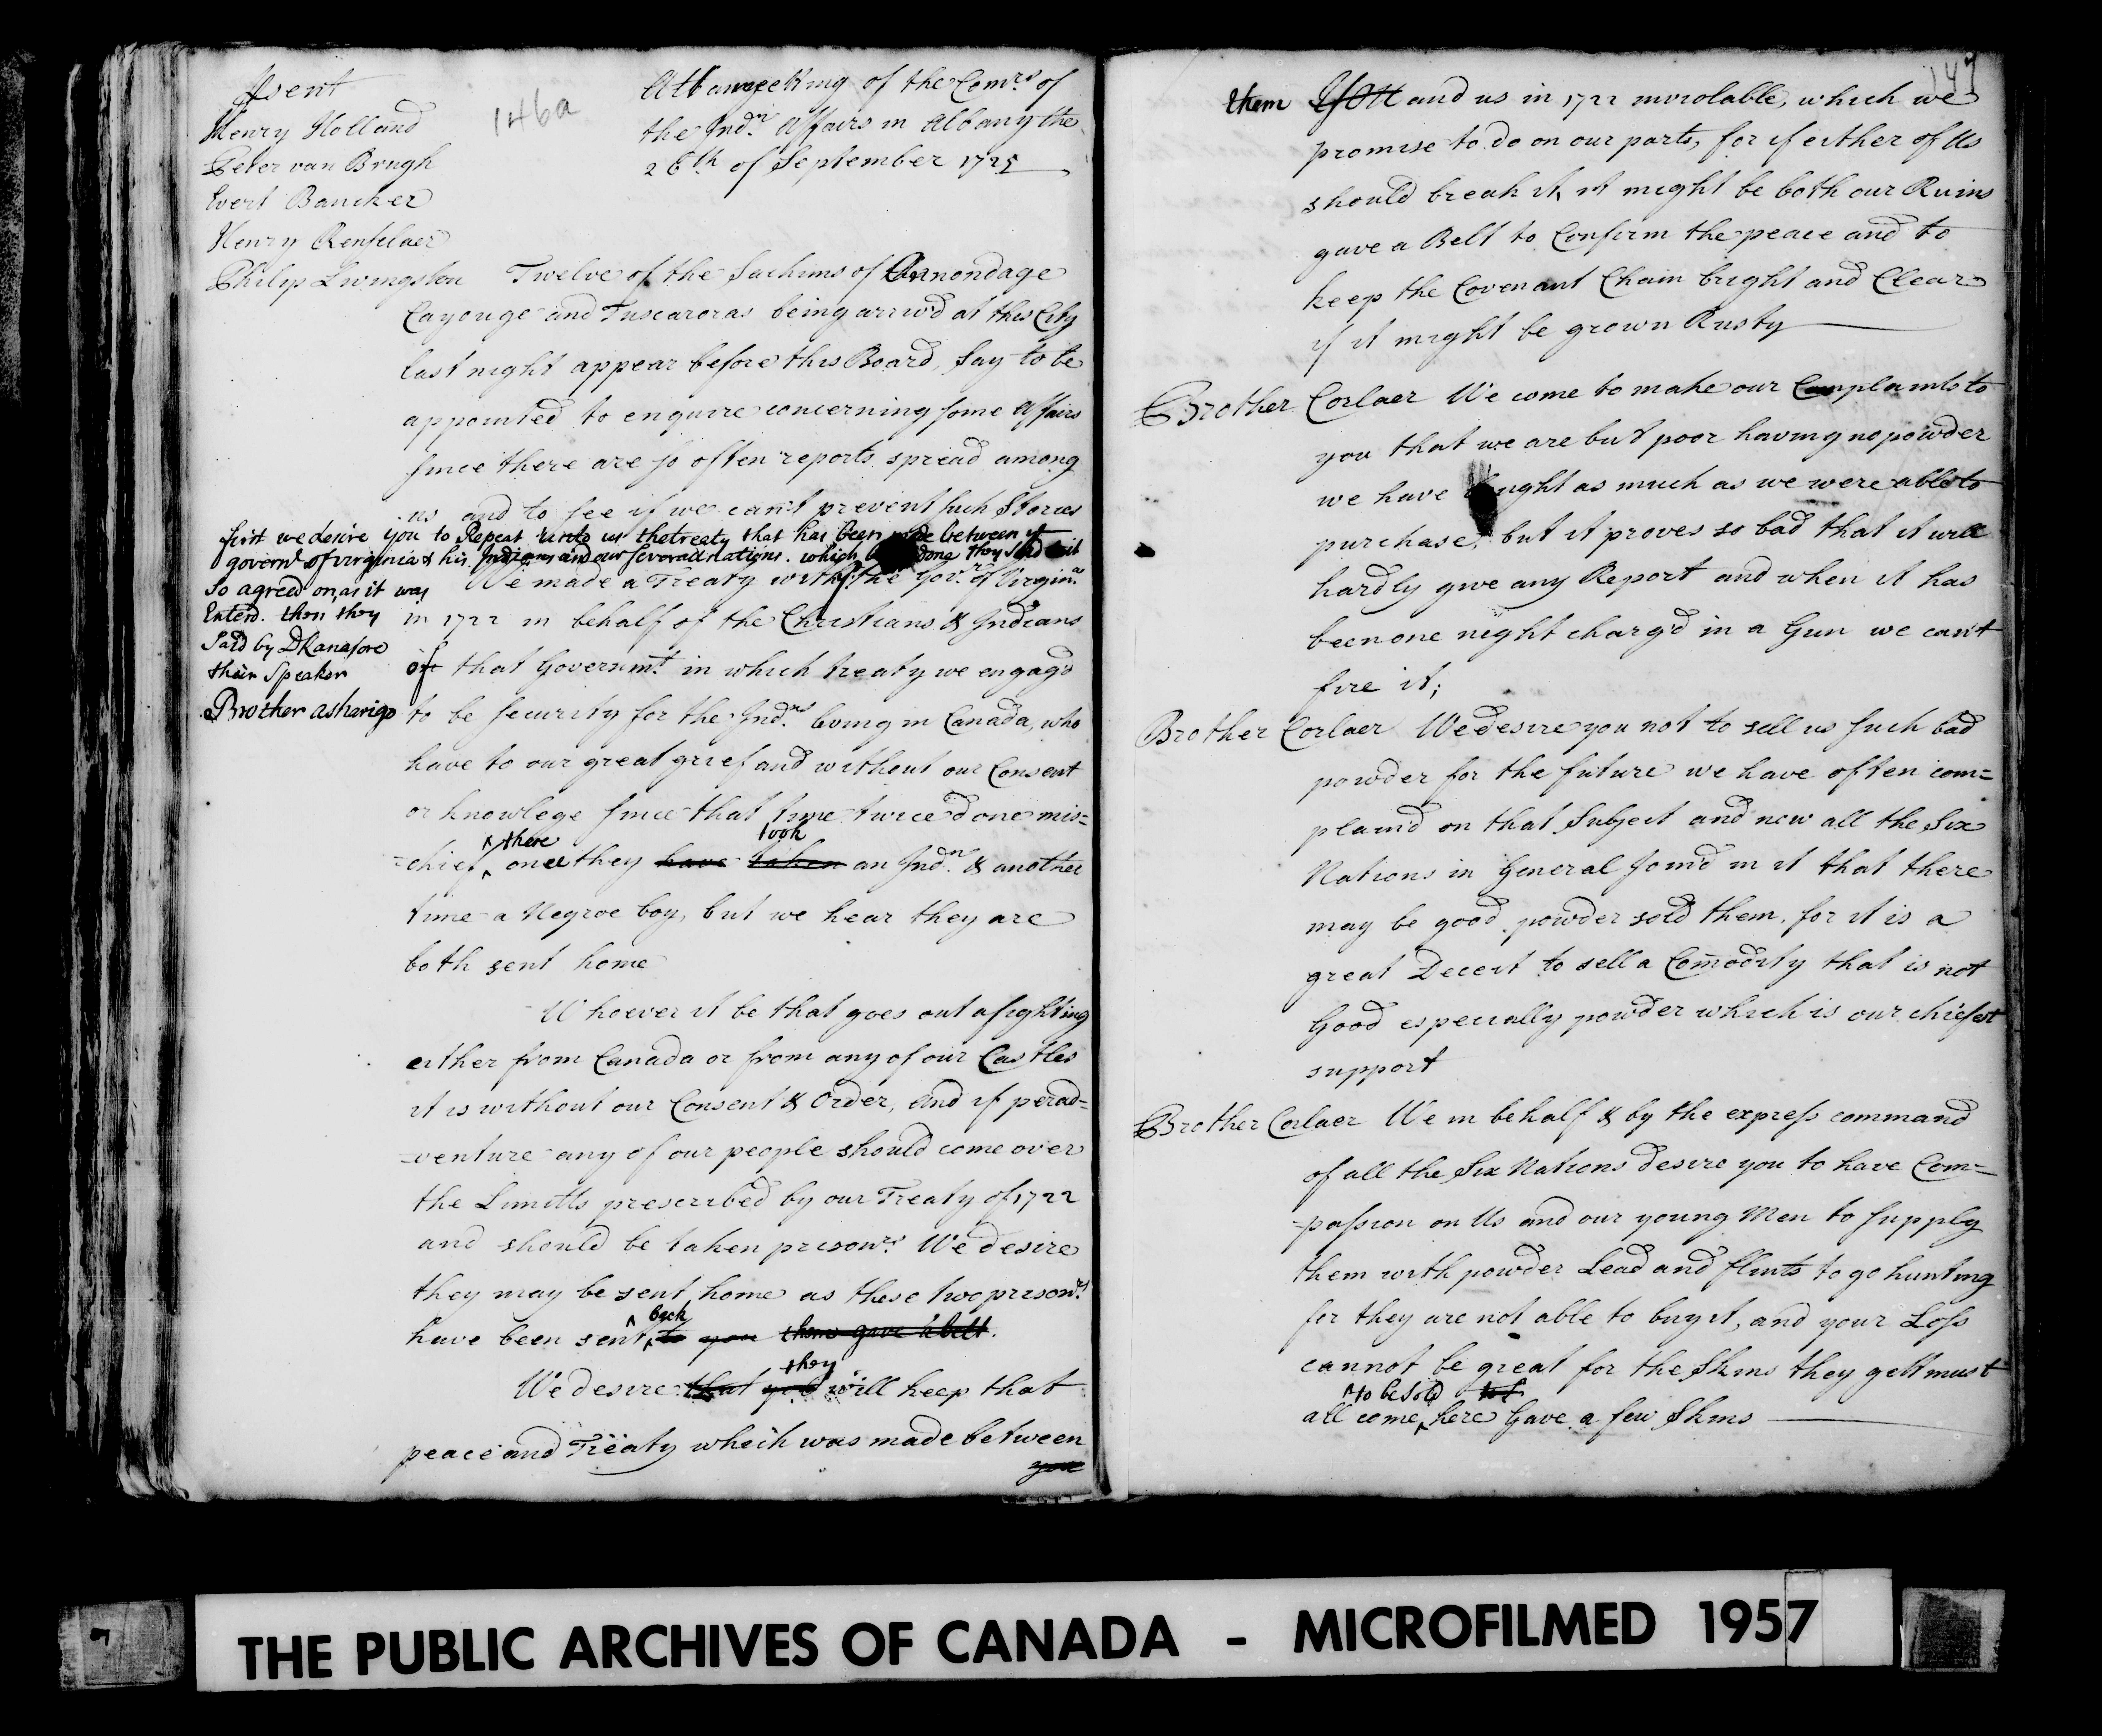 146a
Psent
Henry Holland
Peter van Brugh
Evert Bancker
Henry Renselaer
Philip Livingston
Att a meeting of the Comrs of
the Indn Affairs in Albany the
26th of September 1725
Twelve of the Sachims of Onnondage
Cayouge and Tuscaroras being arriv'd at this City
last night appear before this Board, Say to be
appointed to enquire concerning some Affairs
since there are so often reports spread among
us and to see if we can't prevent such Stories
first we desire you to Repeat unto us the treaty that has been made between ye
governr of virginia & his Indians and our severall nations. which being done they said it
So agreed on, as it was
Enterd. then they
Said by DKanasore
their Speaker
Brother asharigo
We made a Treaty with the Govr of Virginia
in 1722 in behalf of the Christians & Indians
of that Governmt in which treaty we engag'd
to be security for the Indns living in Canada, who
have to our great grief and without our Consent
or knowlege since that time twice done mis=
=chief, there once they have taken took an Indn & another
time a Negroe boy, but we hear they are
both sent home
Whoever it be that goes out a fighting
either from Canada or from any of our Castles
it is without our Consent & Order, and if perad=
=venture any of our people should come over
the Limitts prescribed by our Treaty of 1722
and should be taken prisonrs We desire
they may be sent home as these two prisonrs
have been sent back to you them gave a belt.
We desire that you they will keep that
peace and Treaty which was made between
you
147
them You and us in 1722 inviolable, which we
promise to do on our parts, for if either of Us
should break it, it might be both our Ruins
gave a Belt to Confirm the peace and to
keep the Covenant Chain bright and Clear
if it might be grown Rusty
Brother Corlaer We come to make our Complaints to
you that we are but poor having no powder
we have bought as much as we were able to
purchase, but it proves so bad that it will
hardly give any Report and when it has
been one night charg'd in a Gun we can't
fire it;
Brother Corlaer We desire you not to sell us such bad
powder for the future we have often com=
plain'd on that Subject and now all the Six
Nations in General join'd in it that there
may be good powder sold them, for it is a
great Deceit to sell a Comodity that is not
Good especially powder which is our chiefest
support
Brother Corlaer We in behalf & by the express command
of all the Six Nations desire you to have Com=
=passion on Us and our young Men to supply
them with powder Lead and flints to go hunting
for they are not able to buy it, and your Loss
cannot be great for the Skins they gett must
all come to be sold here Gave a few Skins
THE PUBLIC ARCHIVES OF CANADA - MICROFILMED 1957